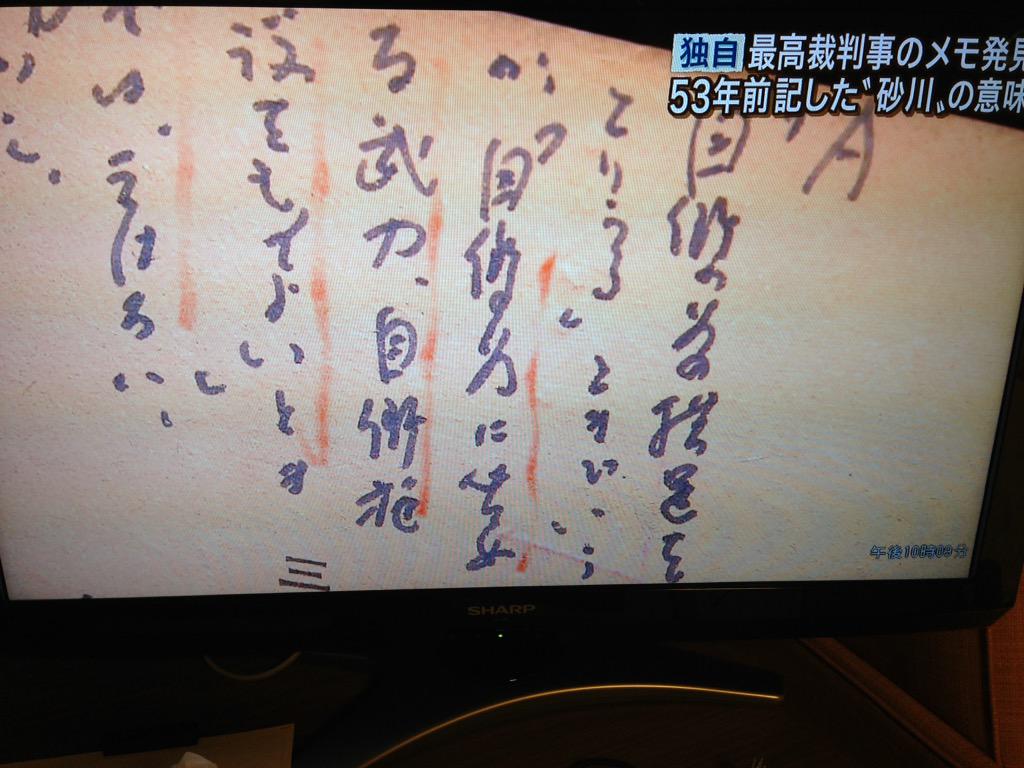 独自 最高裁判事のメモ発見
53年前記した〝砂川〟の意味
自衛の為措置を
とりうる」とはいい
自衛
武力、自衛施
設をもってよいとは
云はない
午後10時09分
SHARP